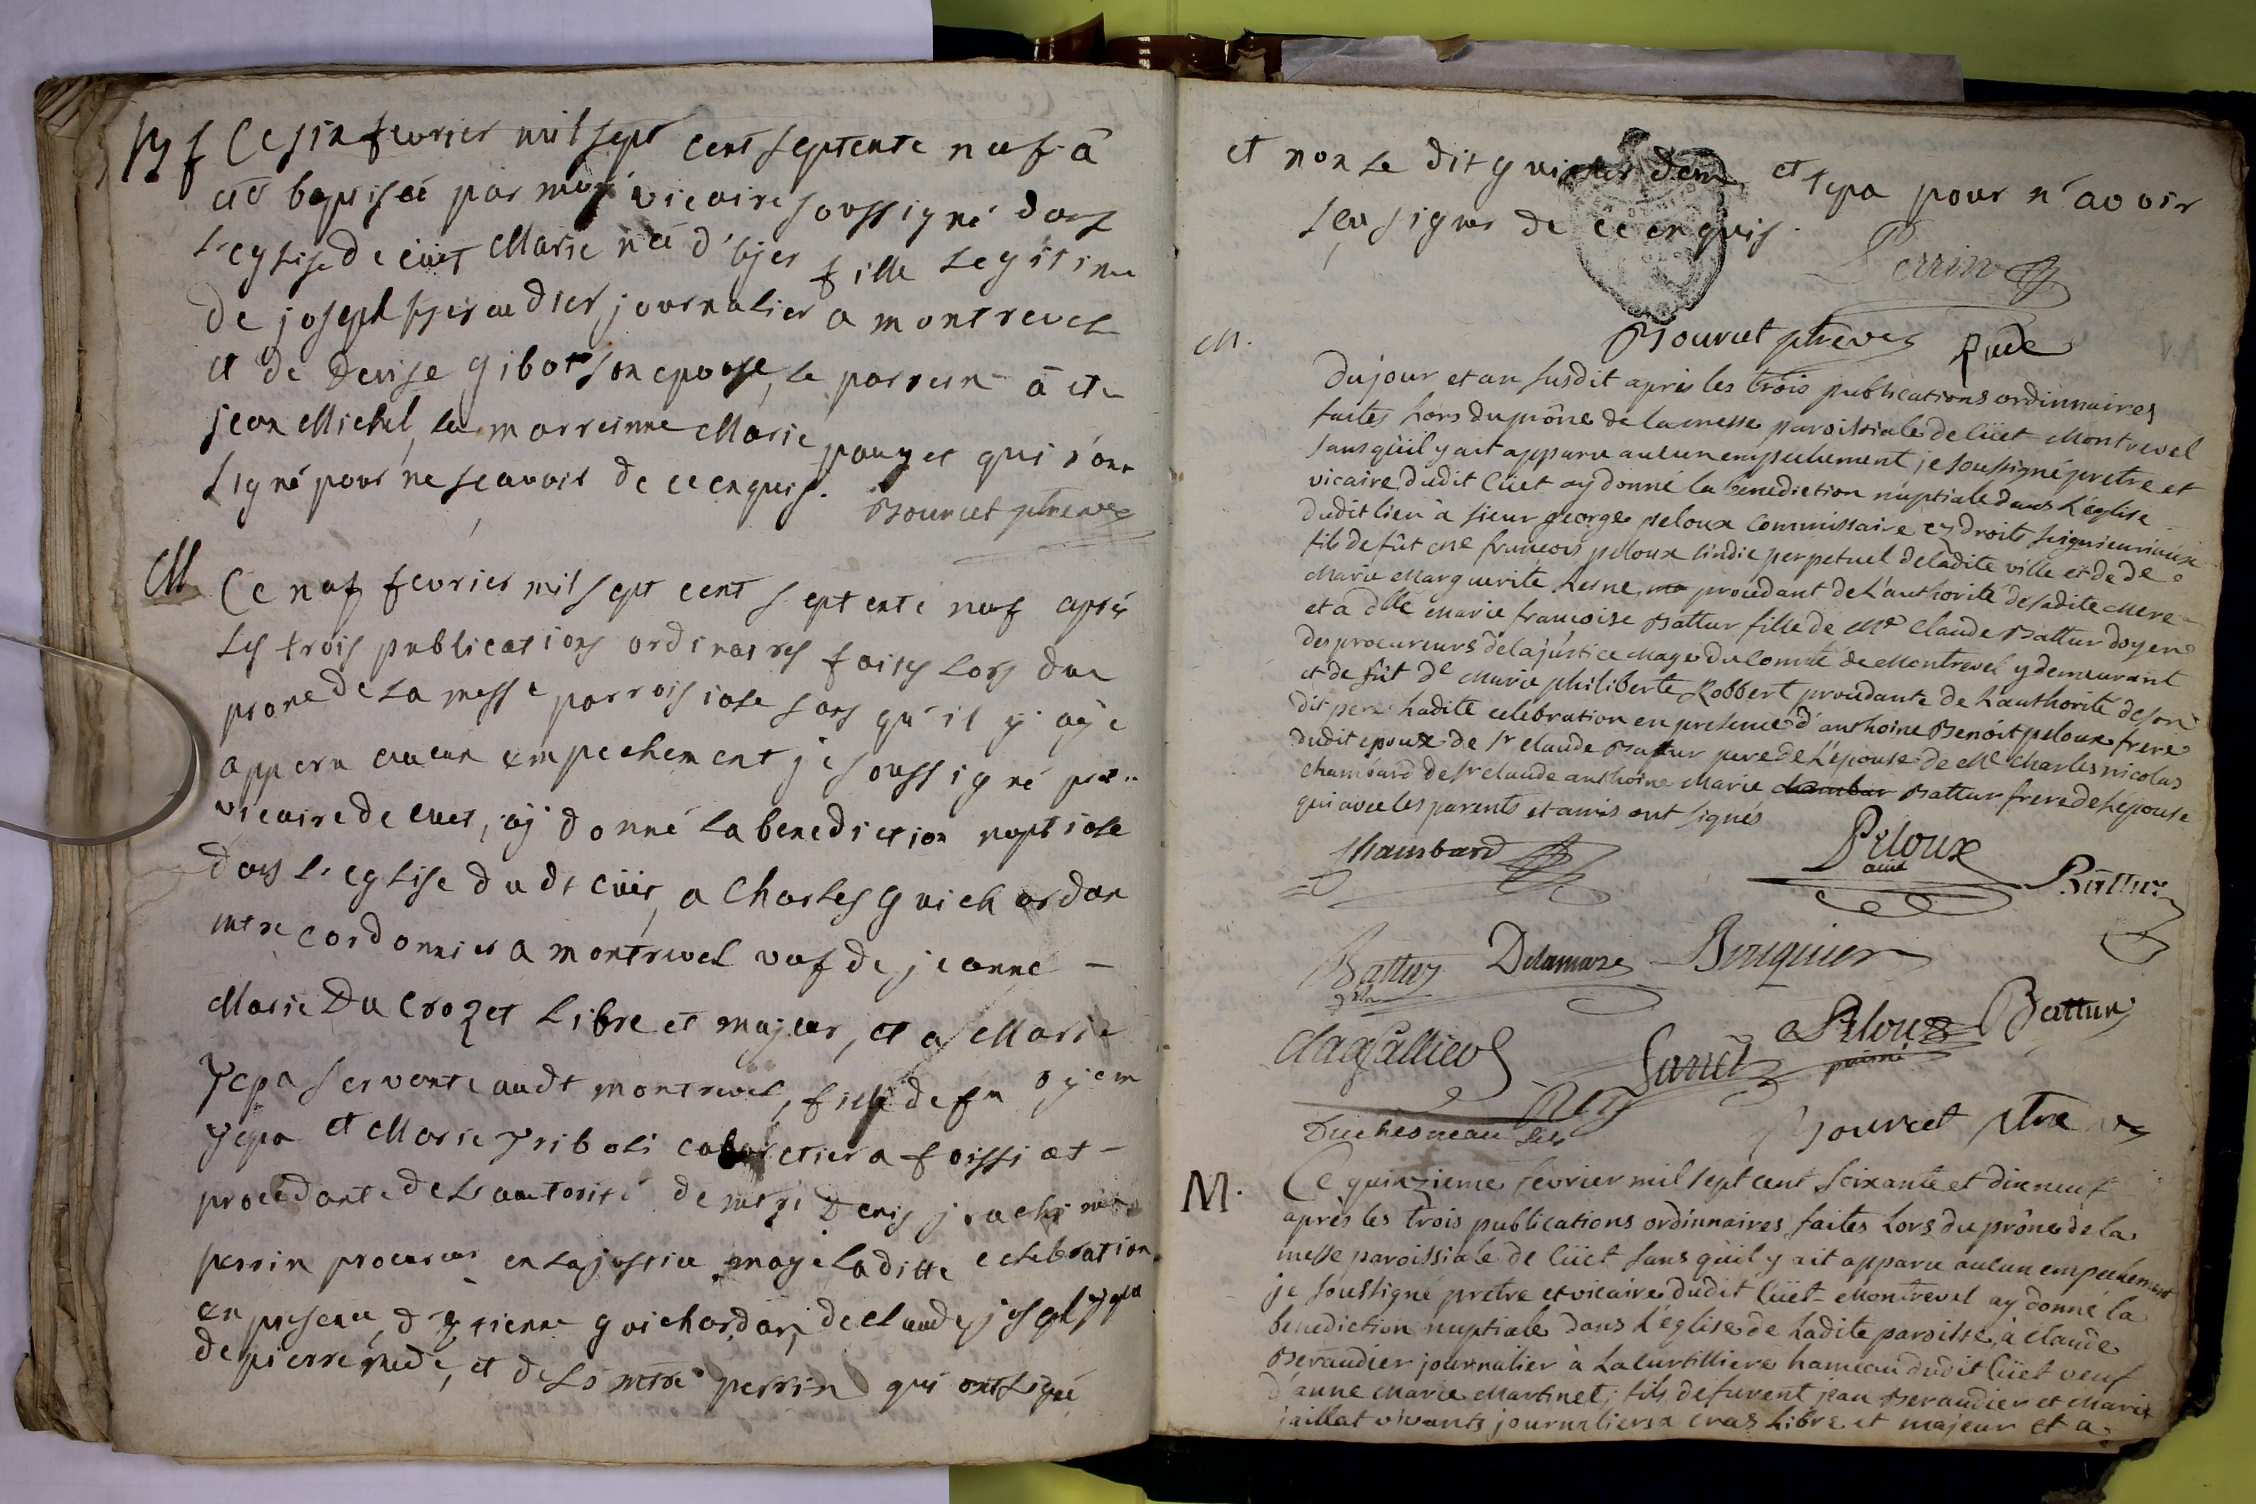 Bf Ce six fevrier mil sept cent septente neuf a
eté baptiseé par moy vicaire soussigné dans
l'eglise de cüet Marie neé d'hjer fille legitime
de joseph journalier a montrevel
et de Denise gibot son epouse, le parrein a ete
jean Michel, la marreinne Marie pouget qui n'ont
signé pour ne scavoir de ce enquis. Bourcet ptre vic
M Ce neuf fevrier mil sept cent septente neuf après
les trois publications ordinaires faites lors du
prone de la messe parroissiale sans qu'il y aÿe
apparu aucun empechement je soussigné pretre
vicaire de cuet, aÿ donné la benediction nuptiale
dans l'eglise dudt cüet, a Charles guichardan
mtre cordonnier a montrevel veuf de jeanne -
Marie Du Crozet libre et majeur, et a Marie
yepa servente audt montrevel, fille de fu
yepa et Marie cabaretier a foissiat -
procedante de l'autorité de Denis
perrin procureur en la justice mage laditte celebration
en presence, d'etienne guichardan, de claude joseph yepa
de pierre rude, et de perrin qui ont signé
et non le dit guichardan et yepa pour n'avoir
sçu signer de ce enquis.
Perrin
Bourcet ptre vic Rude
M.
Du jour et an susdit après les trois publications ordinnaires
faites lors du prône de la messe paroissiale de Cüet Montrevel
sans qu'il y ait apparu aucun empechement je soussigné pretre et
vicaire dudit Cüet aÿ donné la benediction nuptiale dans l'église
dudit lieu à sieur george peloux commissaire es droits seigneuriaux
fils de fût me françois peloux sindic perpetuel deladite ville et de de
Marie Marguerite Lesne procedant de l'authorité desadite mere
et a dlle marie françoise Battur fille de Me Claude Battur doyen
des procureurs de la justice mage du Comté de Montrevel y demeurant
et de fût de marie philiberte Robbert procedante de l'authorité deson
dit pere Ladite celebration en presence d'anthoine Benoit peloux frere
dudit epoux de sr claude Battur pere de l'épouse de Me Charles nicolas
chambard de sr claude anthoine Marie chambar Battur frere de l'épouse
qui avec les parents et amis ont signés
Chambard Peloux
ainé Battur
Battur Delamare
Peloux
puiné Battur
Duchesneau Bourcet ptre vic
M. Ce quinzieme fevrier mil sept cent soixante et dixneuf
après les trois publications ordinnaires faites lors du prône de la
messe paroissiale de Cüet sans qu'il y ait apparu aucun empechement
je soussigné pretre et vicaire dudit Cüet Montrevel ay donné la
benediction nuptiale dans l'église de Ladite paroisse à Claude
Beraudier journalier à Lacurtilliere hameau dudit Cüet veuf
d'anne marie Martinet; fils defurent jean Beraudier et Marie
jaillat vivants journaliers a cras libre et majeur et a